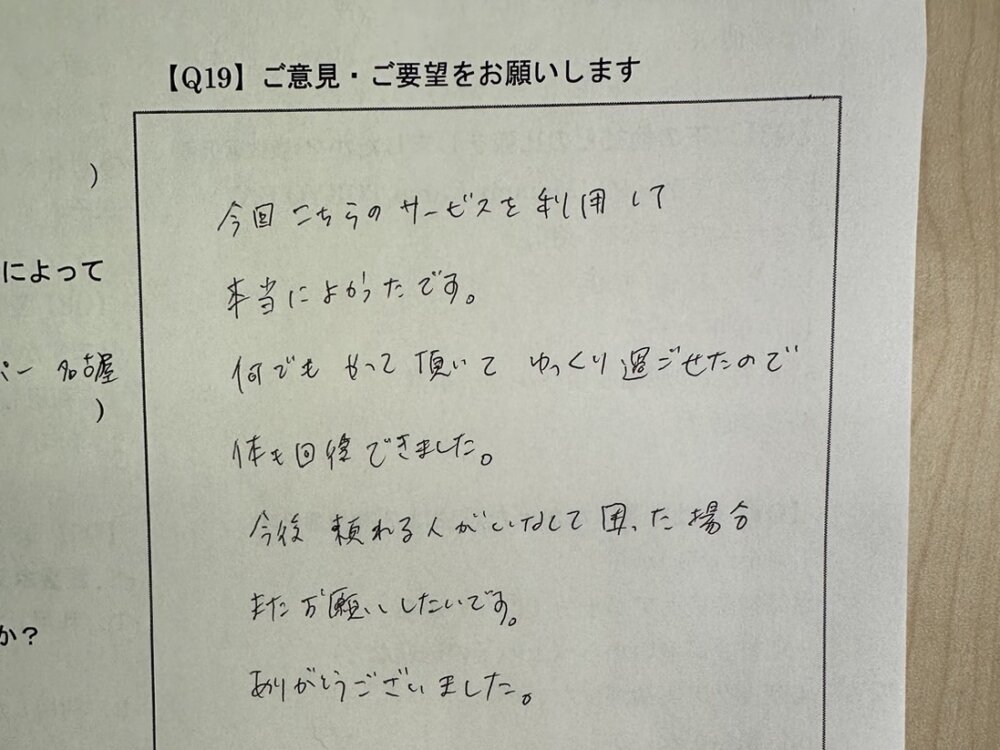 【Q19】ご意見・ご要望をお願いします
)
今回こちらのサービスを利用して
によって
本当によかったです。
名古屋
何でもやって頂いてゆっくり過ごせたので
)
体も回復できました。
今後頼れる人がいなくて困った場合
またお願いしたいです。
か？
ありがとうございました。